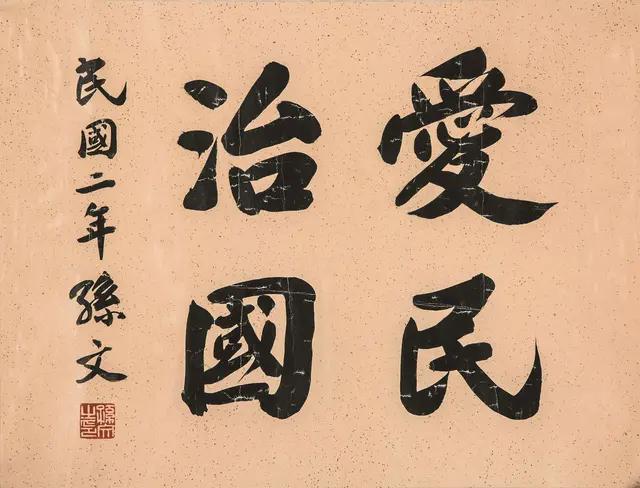 愛民
治國
民國二年孫文
孫文之印